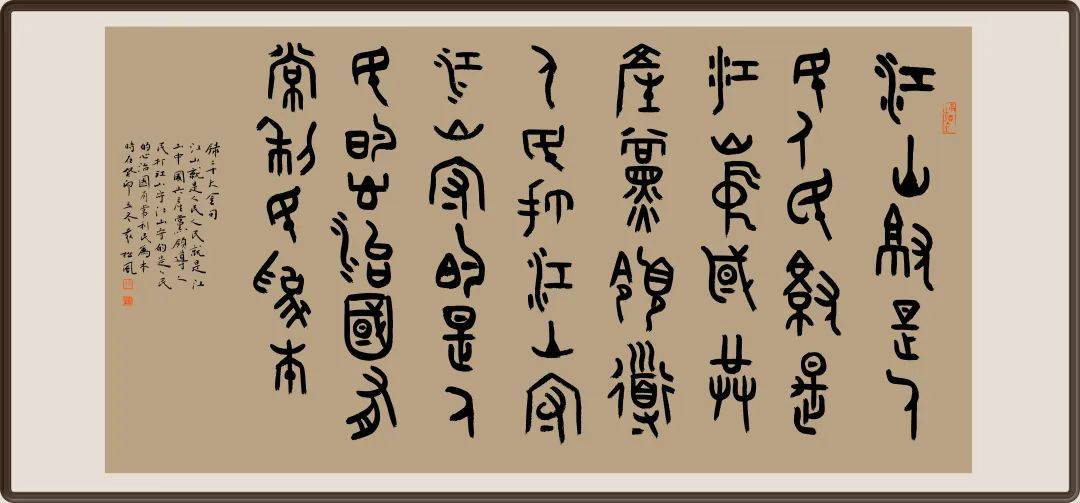 江山就是人
民人民就是
江山中國共
產黨領導
人民打江山守
江山守的是人
民的心治國有
常利民為本
錄二十大金句
江山就是人民人民就是江
山中國共產黨領導人
民打江山守江山守的是人民
的心治國有常利民為本
時在癸卯立冬袁松風